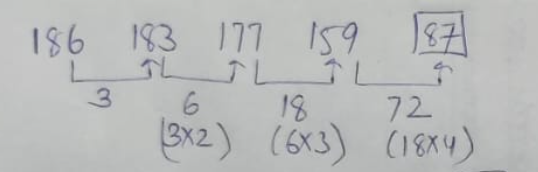 186 183 177 159 87
3 6 18 72
(3×2) (6×3) (18×4)